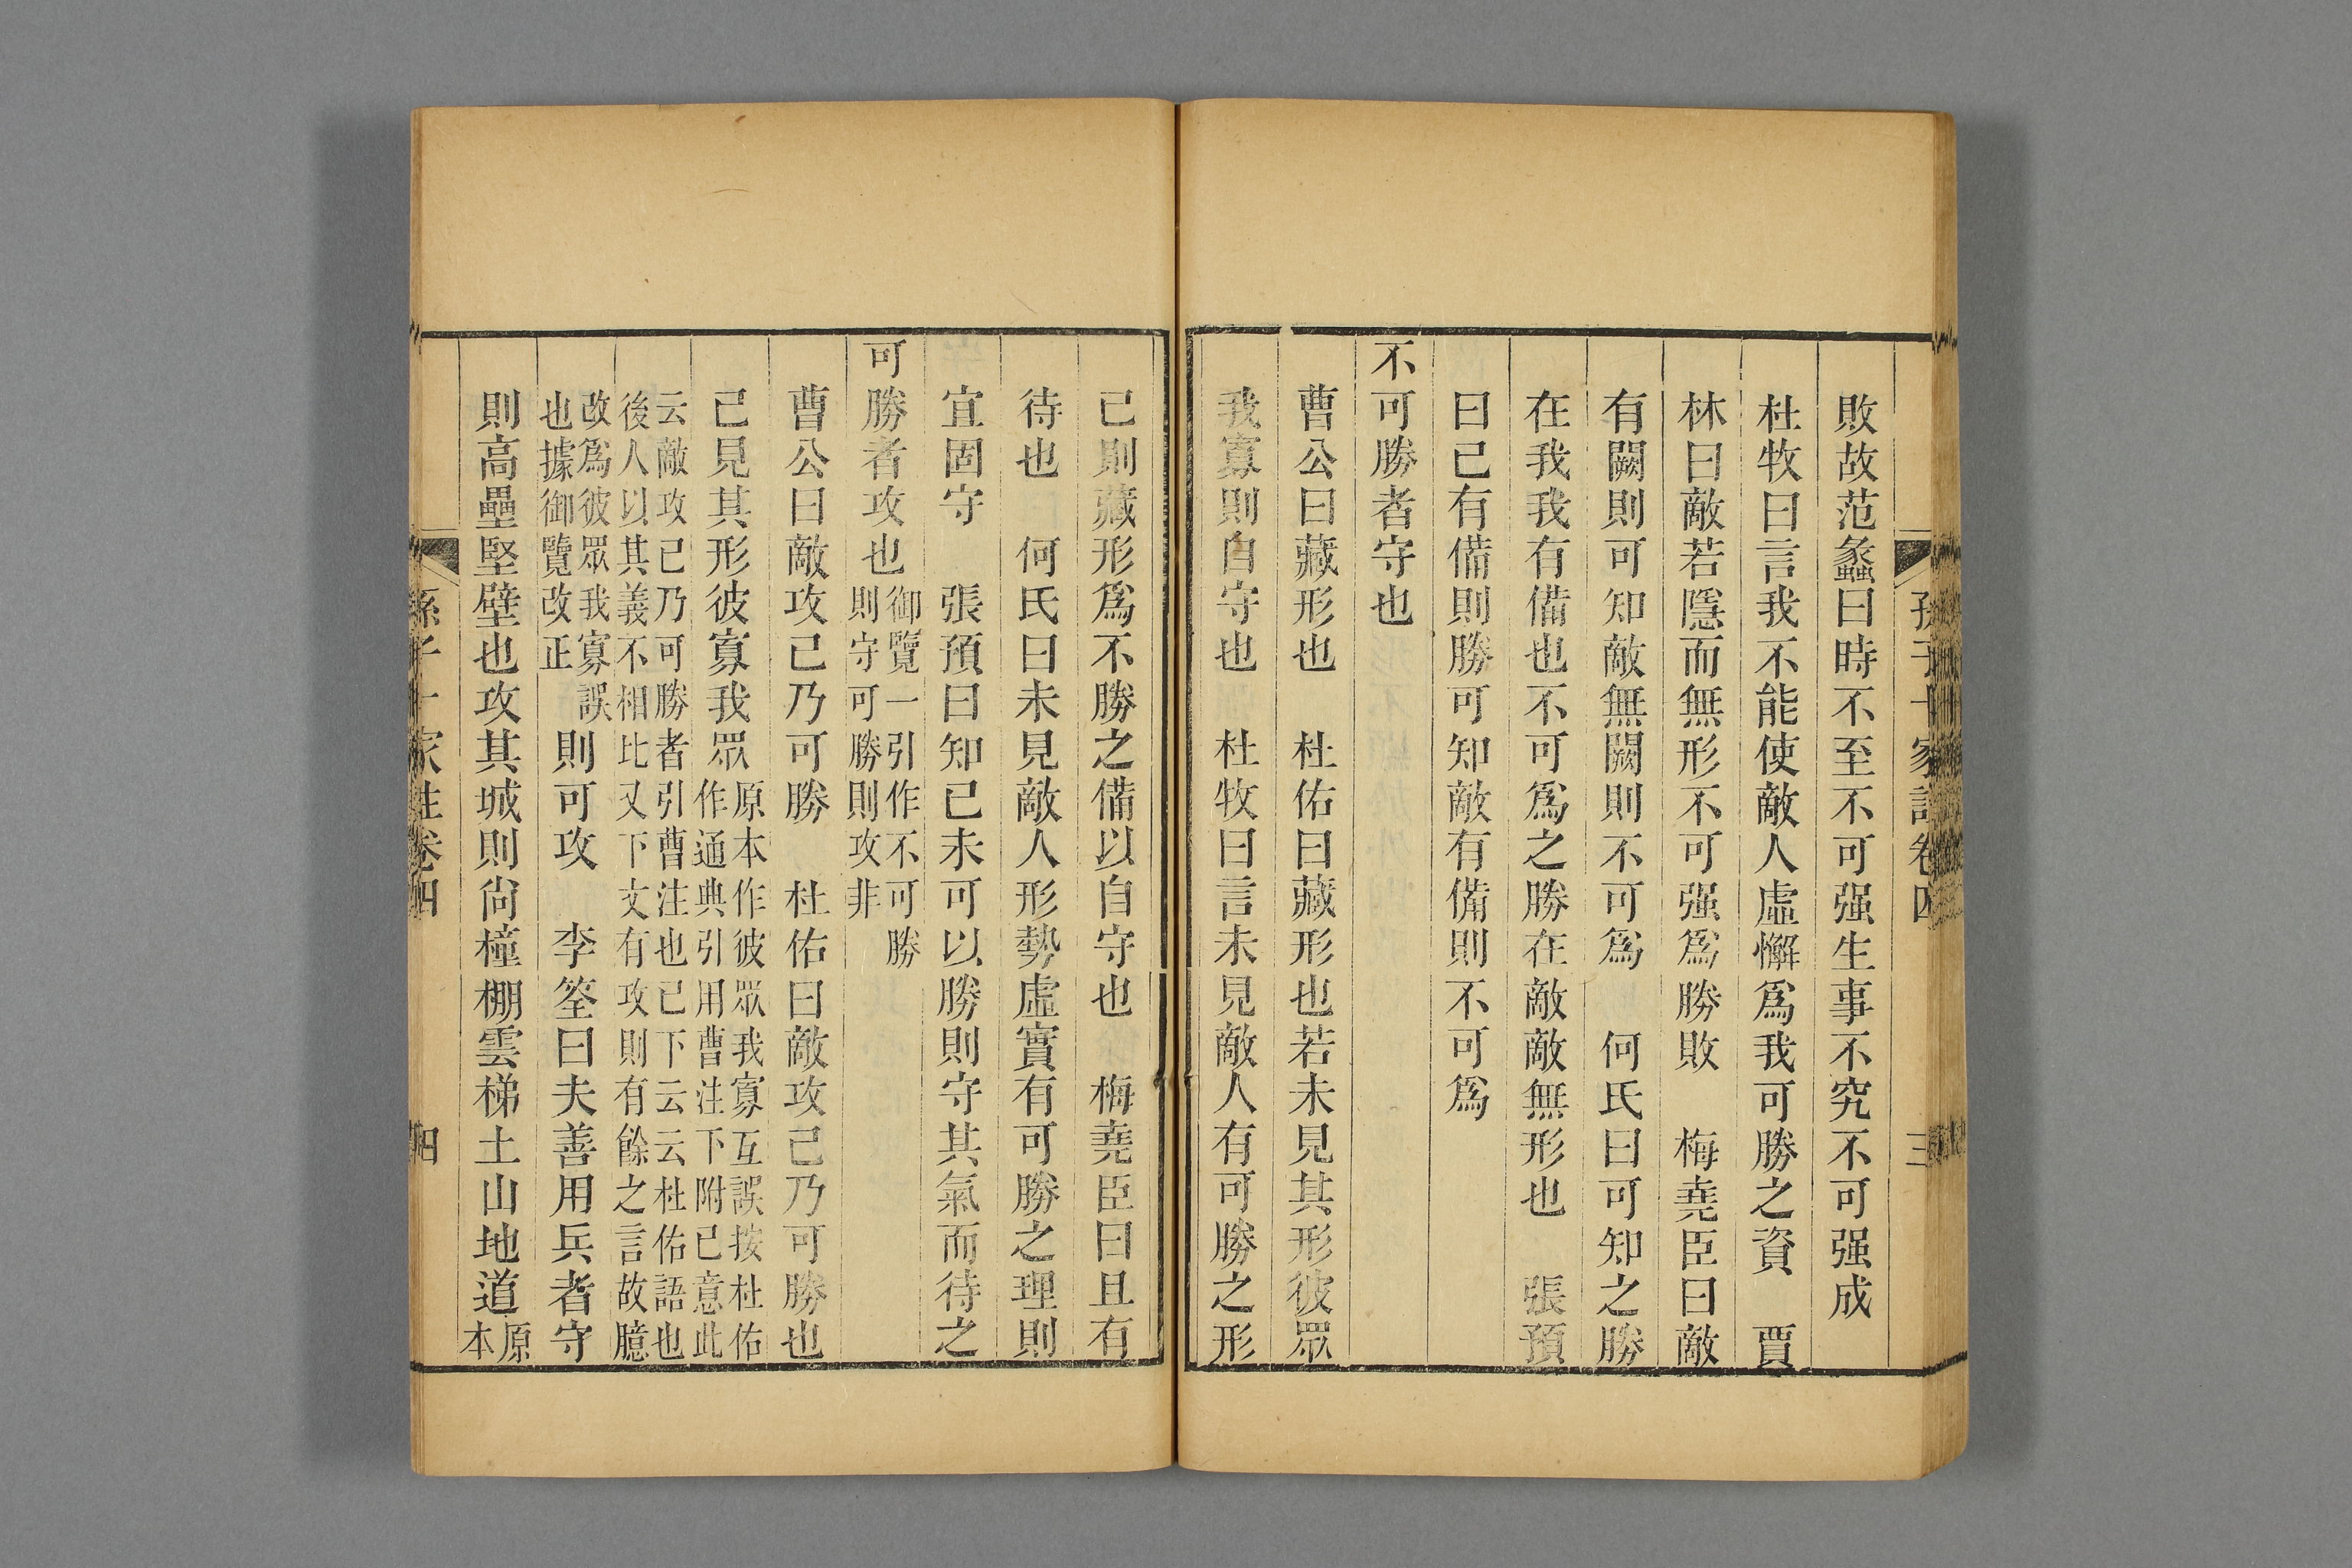 孫子十家註卷四 三
敗故范蠡曰時不至不可强生事不究不可强成
杜牧曰言我不能使敵人虛懈爲我可勝之資 賈
林曰敵若隱而無形不可强爲勝敗 梅堯臣曰敵
有闕則可知敵無闕則不可爲 何氏曰可知之勝
在我我有備也不可爲之勝在敵敵無形也 張預
曰己有備則勝可知敵有備則不可爲
不可勝者守也
曹公曰藏形也 杜佑曰藏形也若未見其形彼眾
我寡則自守也 杜牧曰言未見敵人有可勝之形
己則藏形爲不勝之備以自守也 梅堯臣曰且有
待也 何氏曰未見敵人形勢虛實有可勝之理則
宜固守 張預曰知己未可以勝則守其氣而待之
可勝者攻也
御覽一引作不可勝
則守可勝則攻非
曹公曰敵攻己乃可勝 杜佑曰敵攻己乃可勝也
己見其形彼寡我眾
原本作彼眾我寡互誤按杜佑
作通典引用曹注下附己意此
云敵攻己乃可勝者引曹注也已下云云杜佑語也
後人以其義不相比又下文有攻則有餘之言故臆
改爲彼眾我寡誤
也據御覽改正
則可攻 李筌曰夫善用兵者守
則高壘堅壁也攻其城則尙橦棚雲梯土山地道
原
本
孫子十家註卷四 四